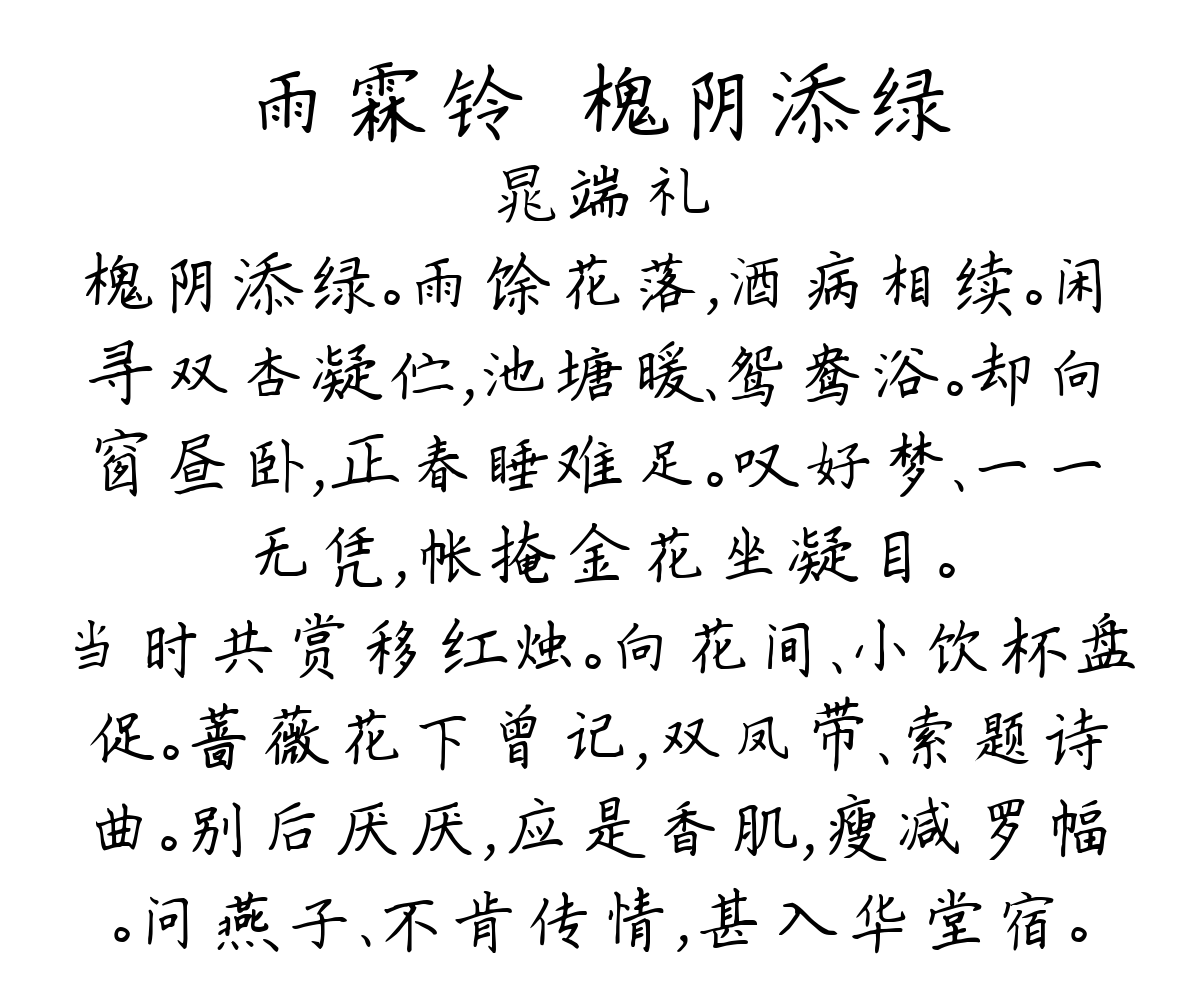 雨霖铃 槐阴添绿
晁端礼
槐阴添绿。雨馀花落,酒病相续。闲
寻双杏凝伫,池塘暖、鸳鸯浴。却向
窗昼卧,正春睡难足。叹好梦、一一
无凭,帐掩金花坐凝目。
当时共赏移红烛。向花间、小饮杯盘
促。蔷薇花下曾记,双凤带、索题诗
曲。别后厌厌,应是香肌,瘦减罗幅
。问燕子、不肯传情,甚入华堂宿。